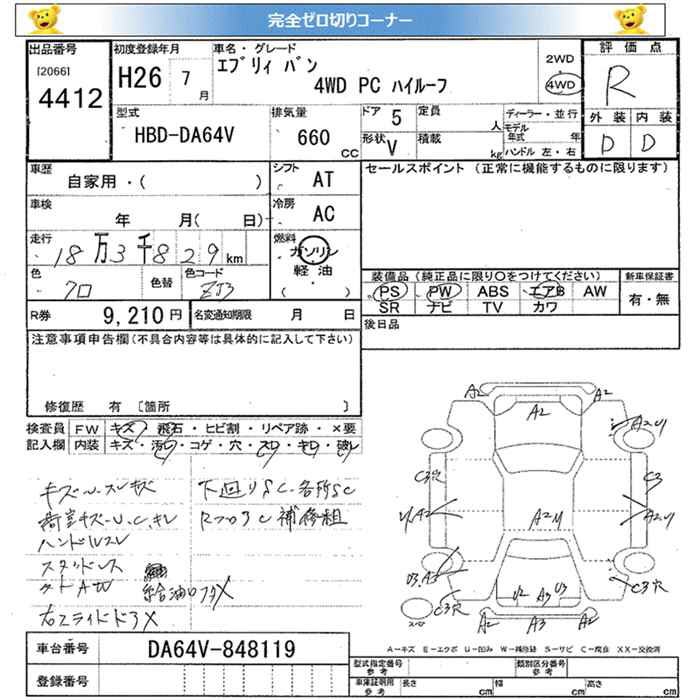 完全ゼロ切りコーナー
出品番号
[2066]
4412
初度登録年月
H26 7月
車名・グレード
エブリィ バン
4WD PC ハイルーフ
2WD
4WD
評価点
R
外装 内装
D D
型式
HBD-DA64V
排気量
660 CC
ドア 5
形状 V
定員 人
積載 kg
ディーラー・並行
モデル年式 年
ハンドル 左・右
車歴
自家用・( )
シフト AT
車検
年 月( 日)
冷房 AC
走行
18万3千829 km
燃料
ガソリン
軽油
( )
色
クロ
色替
色コード
ZJ3
R券 9,210円
名変通知期限 月 日
セールスポイント (正常に機能するものに限ります)
装備品 (純正品に限り○をつけてください)
PS PW ABS エアB AW
SR ナビ TV カワ
新車保証書
有・無
後日品
注意事項申告欄(不具合内容等は具体的に記入して下さい)
修復歴 有 〔箇所 〕
検査員記入欄
FW キズ・飛石・ヒビ割・リペア跡・×要
内装 キズ・汚れ・コゲ・穴・スレ・キレ・破レ
ハンドルスレ
スタッドレス
給油口フタX
右スライドドアX
下回りSC・各所SC
A2 A2 A2
A2U
C3穴 C3
U,A2 A2U A2U
U3,A3
C3穴 U2 A3 U3 C3穴
スペア
A2 A3 A2
A-キズ E-エクボ U-凹み W-補修跡 S-サビ C-腐食 XX-交換済
車台番号
DA64V-848119
登録番号
型式指定番号 参考
類別区分番号 参考
車庫証明用 参考
長さ cm 幅 cm 高さ cm